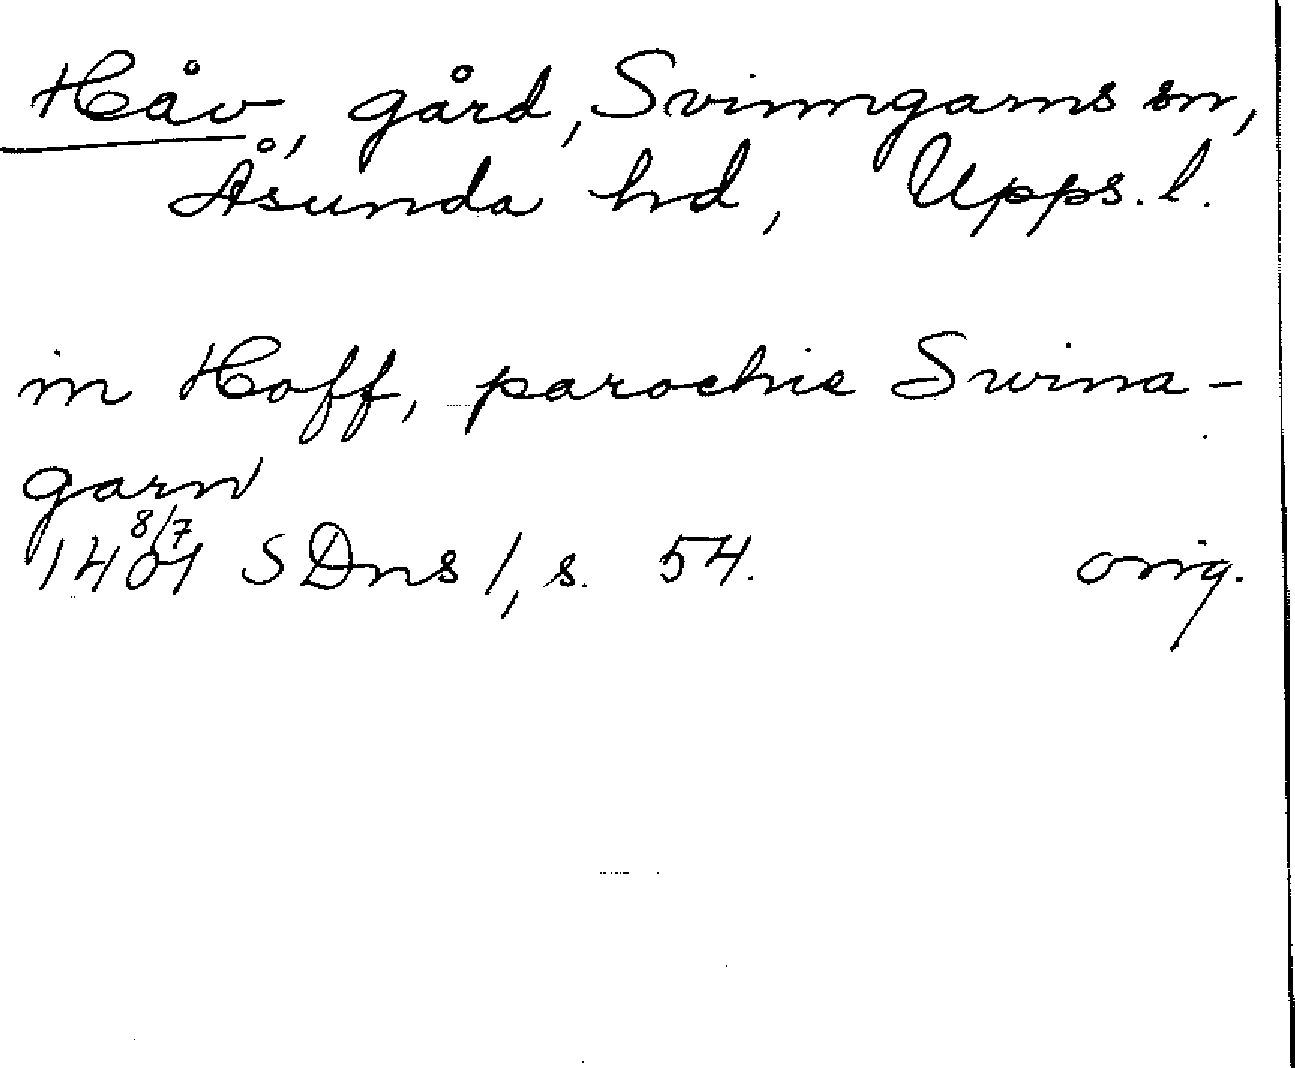 Håv, gård, Svinngarns sn,
Åsunda hd, Upps. l.
in Hoff, parochie Swina-
garn
1401 8/7 SDns 1, s. 54. orig.